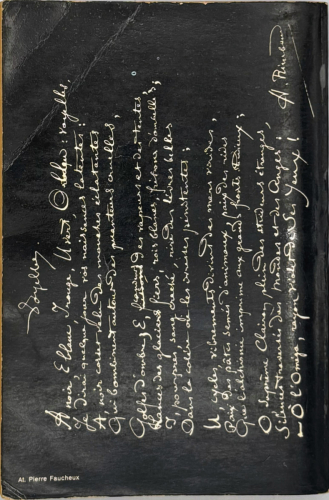 Voyelles
A noir, E blanc, I rouge, U vert, O bleu : voyelles,
Je dirai quelque jour vos naissances latentes :
A, noir corset velu des mouches éclatantes
Qui bombinent autour des puanteurs cruelles,
Golfes d'ombre ; E, candeurs des vapeurs et des tentes,
Lances des glaciers fiers, rois blancs, frissons d'ombelles ;
I, pourpres, sang craché, rire des lèvres belles
Dans la colère ou les ivresses pénitentes ;
U, cycles, vibrements divins des mers virides,
Paix des pâtis semés d'animaux, paix des rides
Que l'alchimie imprime aux grands fronts studieux ;
O, Suprême Clairon plein des strideurs étranges,
Silences traversés des Mondes et des Anges :
— O l'Oméga, rayon violet de Ses Yeux !
A. Rimbaud
At. Pierre Faucheux